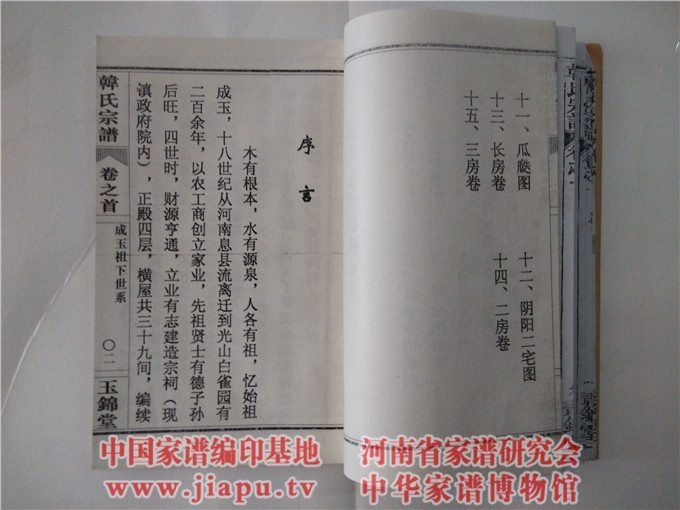 十一、瓜瓞图
十二、阴阳二宅图
十三、长房卷
十四、二房卷
十五、三房卷
序言
木有根本，水有源泉，人各有祖，忆始祖
成玉，十八世纪从河南息县流离迁到光山白雀园有
二百余年，以农工商创立家业，先祖贤士有德子孙
后旺，四世时，财源亨通，立业有志建造宗祠（现
镇政府院内），正殿四层，横屋共三十九间，编续
韓氏宗譜
卷之首
成玉祖下世系
〇二
玉錦堂
韓氏宗譜
中国家谱编印基地
河南省家谱研究会
www.jiapu.tv
中华家谱博物馆